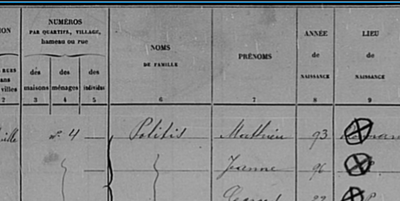 ION NUMÉROS NOMS PRÉNOMS ANNÉE LIEU
PAR QUARTIER, VILLAGE, DE FAMILLE de de
hameau ou rue NAISSANCE NAISSANCE
des des des
maisons ménages individus
villes
2 3 4 5 6 7 8 9
ville n° 4 — Politis Mathieu 93
Jeanne 96